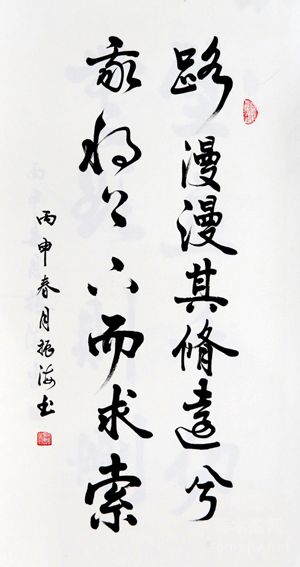 路漫漫其脩遠兮
我将上下而求索
丙申春月振海书